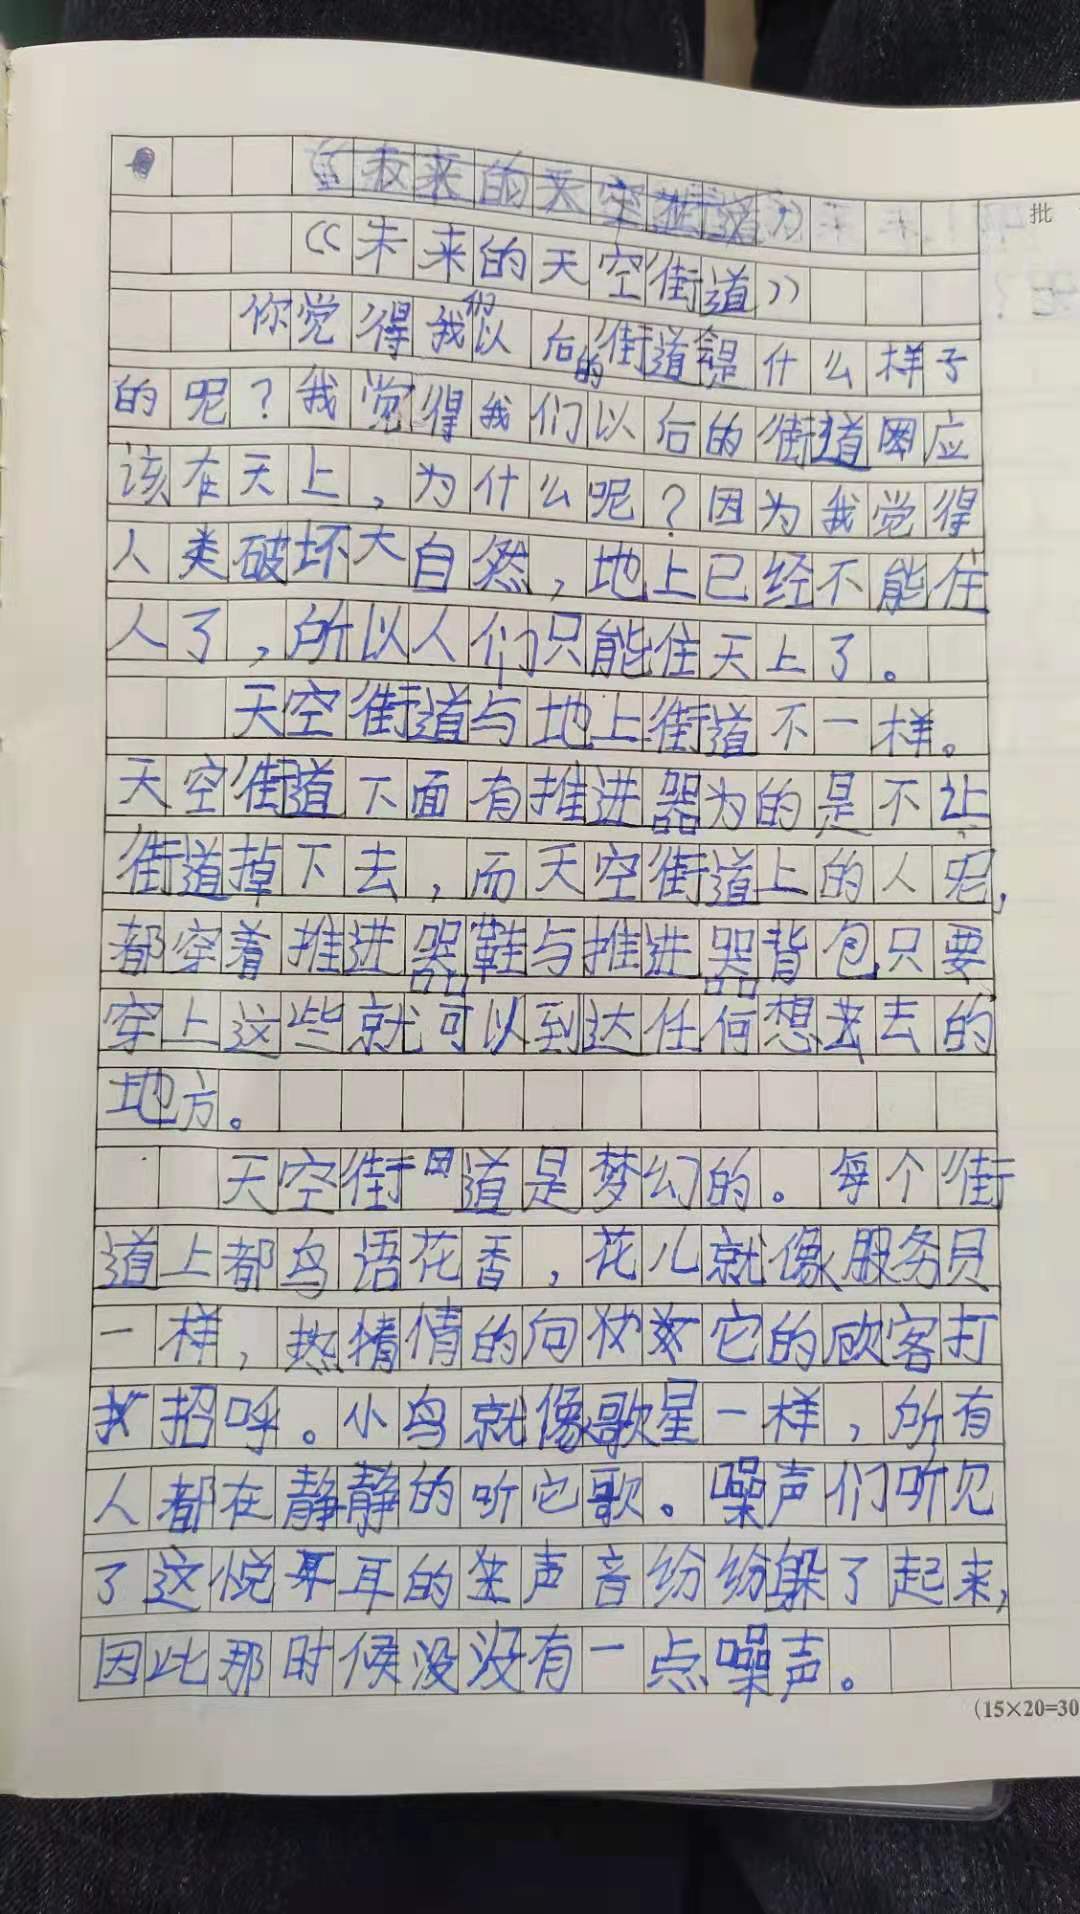 《未来的天空街道》
批
《未来的天空街道》
你觉得我们以后的街道会是什么样子
的呢？我觉得我们以后的街道应
该在天上，为什么呢？因为我觉得
人类破坏大自然，地上已经不能住
人了，所以人们只能住天上了。
天空街道与地上街道不一样。
天空街道下面有推进器为的是不让
街道掉下去，而天空街道上的人呢，
都穿着推进器鞋与推进器背包只要
穿上这些就可以到达任何想去去的
地方。
天空街道是梦幻的。每个街
道上都鸟语花香，花儿就像服务员
一样，热情的向它的顾客打
招呼。小鸟就像歌星一样，所有
人都在静静的听它歌。噪声们听见
了这悦耳的声音纷纷躲了起来，
因此那时候没没有一点噪声。
(15×20=30